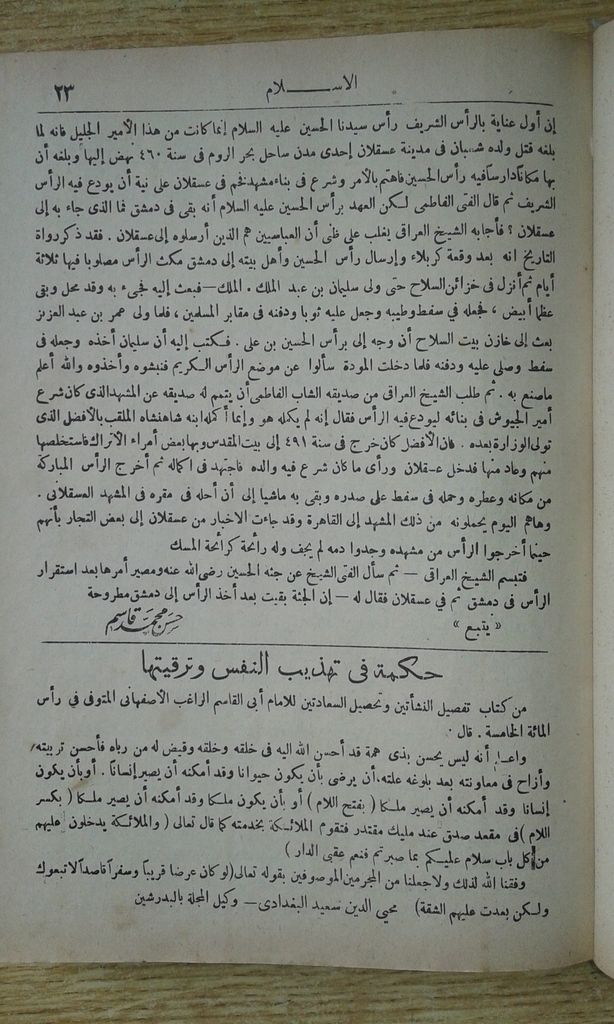 الاســـــلام
٢٣
إن أول عناية بالرأس الشريف رأس سيدنا الحسين عليه السلام إنما كانت من هذا الأمير الجليل فانه لما
بلغه قتل ولده شعبان فى مدينة عسقلان إحدى مدن ساحل بحر الروم فى سنة ٤٦٠ نهض إليها وبلغه أن
بها مكانا دارسا فيه رأس الحسين فاهتم بالأمر وشرع فى بناء مشهد فخم فى عسقلان على نية أن يودع فيه الرأس
الشريف ثم قال الفتى الفاطمى لكن العهد برأس الحسين عليه السلام أنه بقى فى دمشق فما الذى جاء به إلى
عسقلان ؟ فأجابه الشيخ العراقى يغلب على ظنى أن العباسيين هم الذين أرسلوه إلى عسقلان . فقد ذكر رواة
التاريخ انه بعد وقعة كربلاء وإرسال رأس الحسين وأهل بيته إلى دمشق مكث الرأس مصلوبا فيها ثلاثة
أيام ثم أنزل فى خزائن السلاح حتى ولى سليمان بن عبد الملك . الملك — فبعث إليه فجىء به وقد محل وبقى
عظما أبيض ، فجعله فى سفط وطيبه وجعل عليه ثوبا ودفنه فى مقابر المسلمين ، فلما ولى عمر بن عبد العزيز
بعث إلى خازن بيت السلاح أن وجه إلى برأس الحسين بن على . فكتب إليه أن سليمان أخذه وجعله فى
سفط وصلى عليه ودفنه فلما دخلت المودة سألوا عن موضع الرأس الكريم فنبشوه وأخذوه والله أعلم
ماصنع به . ثم طلب الشيخ العراقى من صديقه الشاب الفاطمى أن يتمم له صديقه عن المشهد الذى كان شرع
أمير الجيوش فى بنائه ليودع فيه الرأس فقال إنه لم يكمله هو وإنما أكمله ابنه شاهنشاه الملقب بالأفضل الذى
تولى الوزارة بعده . فان الأفضل كان خرج فى سنة ٤٩١ إلى بيت المقدس وبها بعض أمراء الأتراك فاستخلصها
منهم وعاد منها فدخل عسقلان ورأى ما كان شرع فيه والده فاجتهد فى اكماله ثم أخرج الرأس المباركة
من مكانه وعطره وحمله فى سفط على صدره وبقى به ماشيا إلى أن أحله فى مقره فى المشهد العسقلانى .
وهاهم اليوم يحملونه من ذلك المشهد إلى القاهرة وقد جاءت الاخبار من عسقلان إلى بعض التجار بأنهم
حينما أخرجوا الرأس من مشهده وجدوا دمه لم يجف وله رائحة كرائحة المسك
فتبسم الشيخ العراقى — ثم سأل الفتى الشيخ عن جثه الحسين رضى الله عنه ومصير أمرها بعد استقرار
الرأس فى دمشق ثم فى عسقلان فقال له — إن الجثة بقيت بعد أخذ الرأس إلى دمشق مطروحة
« يتبع »
حسن محمد قاسم
حكمة فى تهذيب النفس وترقيتها
من كتاب تفصيل النشأتين وتحصيل السعادتين للامام أبى القاسم الراغب الأصفهانى المتوفى فى رأس
المائة الخامسة . قال .
واعلم أنه ليس يحسن بذى همة قد أحسن الله اليه فى خلقه وخلقه وقيض له من رباه فأحسن تربيته
وأزاح فى معاونته بعد بلوغه علته، أن يرضى بأن يكون حيوانا وقد أمكنه أن يصير إنسانا . أو بأن يكون
إنسانا وقد أمكنه أن يصير ملكا ( بفتح اللام ) أو بأن يكون ملكا وقد أمكنه أن يصير ملكا ( بكسر
اللام ) فى مقعد صدق عند مليك مقتدر فتقوم الملائكة بخدمته كما قال تعالى ( والملائكة يدخلون عليهم
من كل باب سلام عليكم بما صبرتم فنعم عقبى الدار )
وفقنا الله لذلك ولاجعلنا من المجرمين الموصوفين بقوله تعالى (لو كان عرضا قريبا وسفرا قاصدا لاتبعوك
ولكن بعدت عليهم الشقة) محيى الدين سعيد البغدادى — وكيل المجلة بالبدرشين